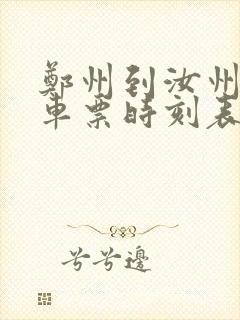 鄭州到汝州
車票時刻表
兮兮邊